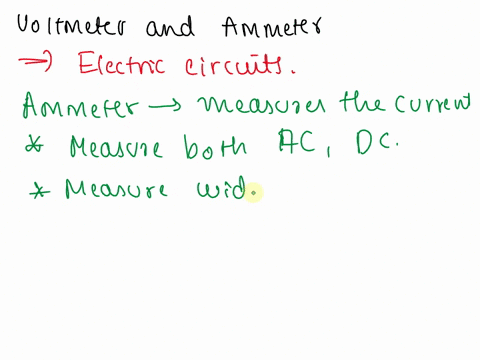 Voltmeter and Ammeter
→ Electric circuits.
Ammeter → measures the current
* Measure both AC, DC.
* Measure wid